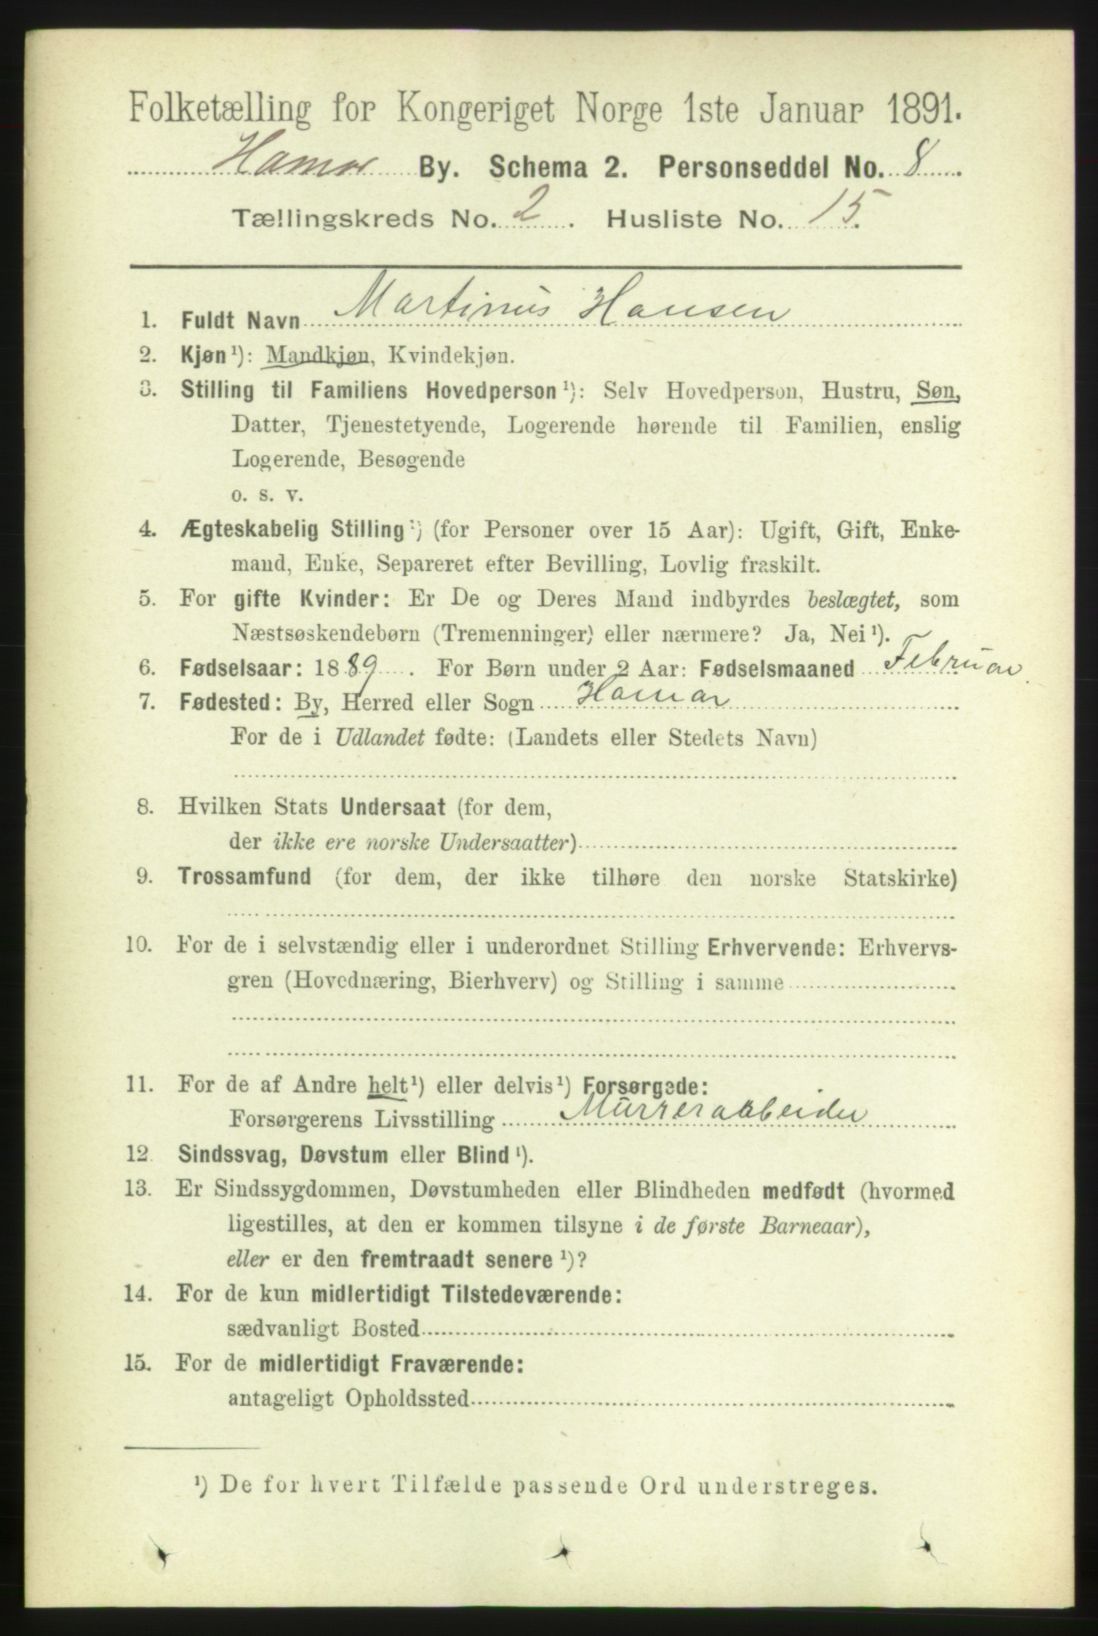 Folketælling for Kongeriget Norge 1ste Januar 1891.
Hamar By. Schema 2. Personseddel No. 8
Tællingskreds No. 2. Husliste No. 15.
1. Fuldt Navn Martinus Hansen
2. Kjøn¹): Mandkjøn, Kvindekjøn.
3. Stilling til Familiens Hovedperson¹): Selv Hovedperson, Hustru, Søn,
Datter, Tjenestetyende, Logerende hørende til Familien, enslig
Logerende, Besøgende
o. s. v.
4. Ægteskabelig Stilling¹) (for Personer over 15 Aar): Ugift, Gift, Enke-
mand, Enke, Separeret efter Bevilling, Lovlig fraskilt.
5. For gifte Kvinder: Er De og Deres Mand indbyrdes beslægtet, som
Næstsøskendebørn (Tremenninger) eller nærmere? Ja, Nei¹).
6. Fødselsaar: 1889. For Børn under 2 Aar: Fødselsmaaned Februar.
7. Fødested: By, Herred eller Sogn Hamar
For de i Udlandet fødte: (Landets eller Stedets Navn)
8. Hvilken Stats Undersaat (for dem,
der ikke ere norske Undersaatter)
9. Trossamfund (for dem, der ikke tilhøre den norske Statskirke)
10. For de i selvstændig eller i underordnet Stilling Erhvervende: Erhvervs-
gren (Hovednæring, Bierhverv) og Stilling i samme
11. For de af Andre helt¹) eller delvis¹) Forsørgede:
Forsørgerens Livsstilling Murerarbeider
12. Sindssvag, Døvstum eller Blind¹).
13. Er Sindssygdommen, Døvstumheden eller Blindheden medfødt (hvormed
ligestilles, at den er kommen tilsyne i de første Barneaar),
eller er den fremtraadt senere¹)?
14. For de kun midlertidigt Tilstedeværende:
sædvanligt Bosted
15. For de midlertidigt Fraværende:
antageligt Opholdssted
¹) De for hvert Tilfælde passende Ord understreges.